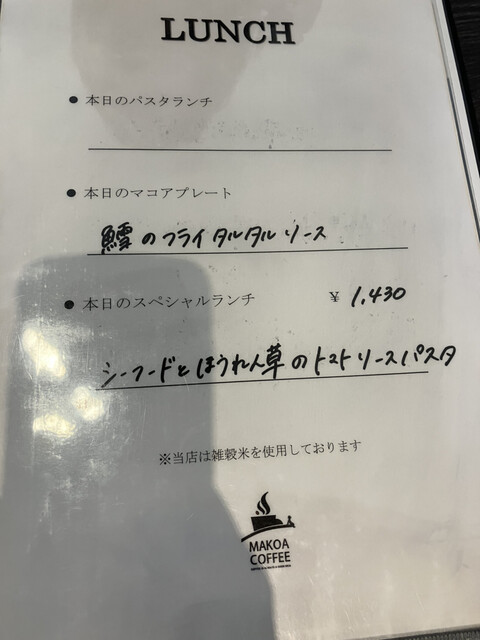 LUNCH
● 本日のパスタランチ
● 本日のマコアプレート
鱈のフライタルタルソース
● 本日のスペシャルランチ ¥ 1,430
シーフードとほうれん草のトマトソースパスタ
※当店は雑穀米を使用しております
MAKOA
COFFEE